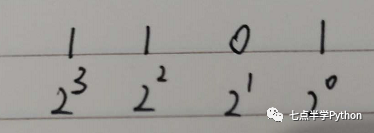 1 1 0 1
2³ 2² 2¹ 2⁰
七点半学Python